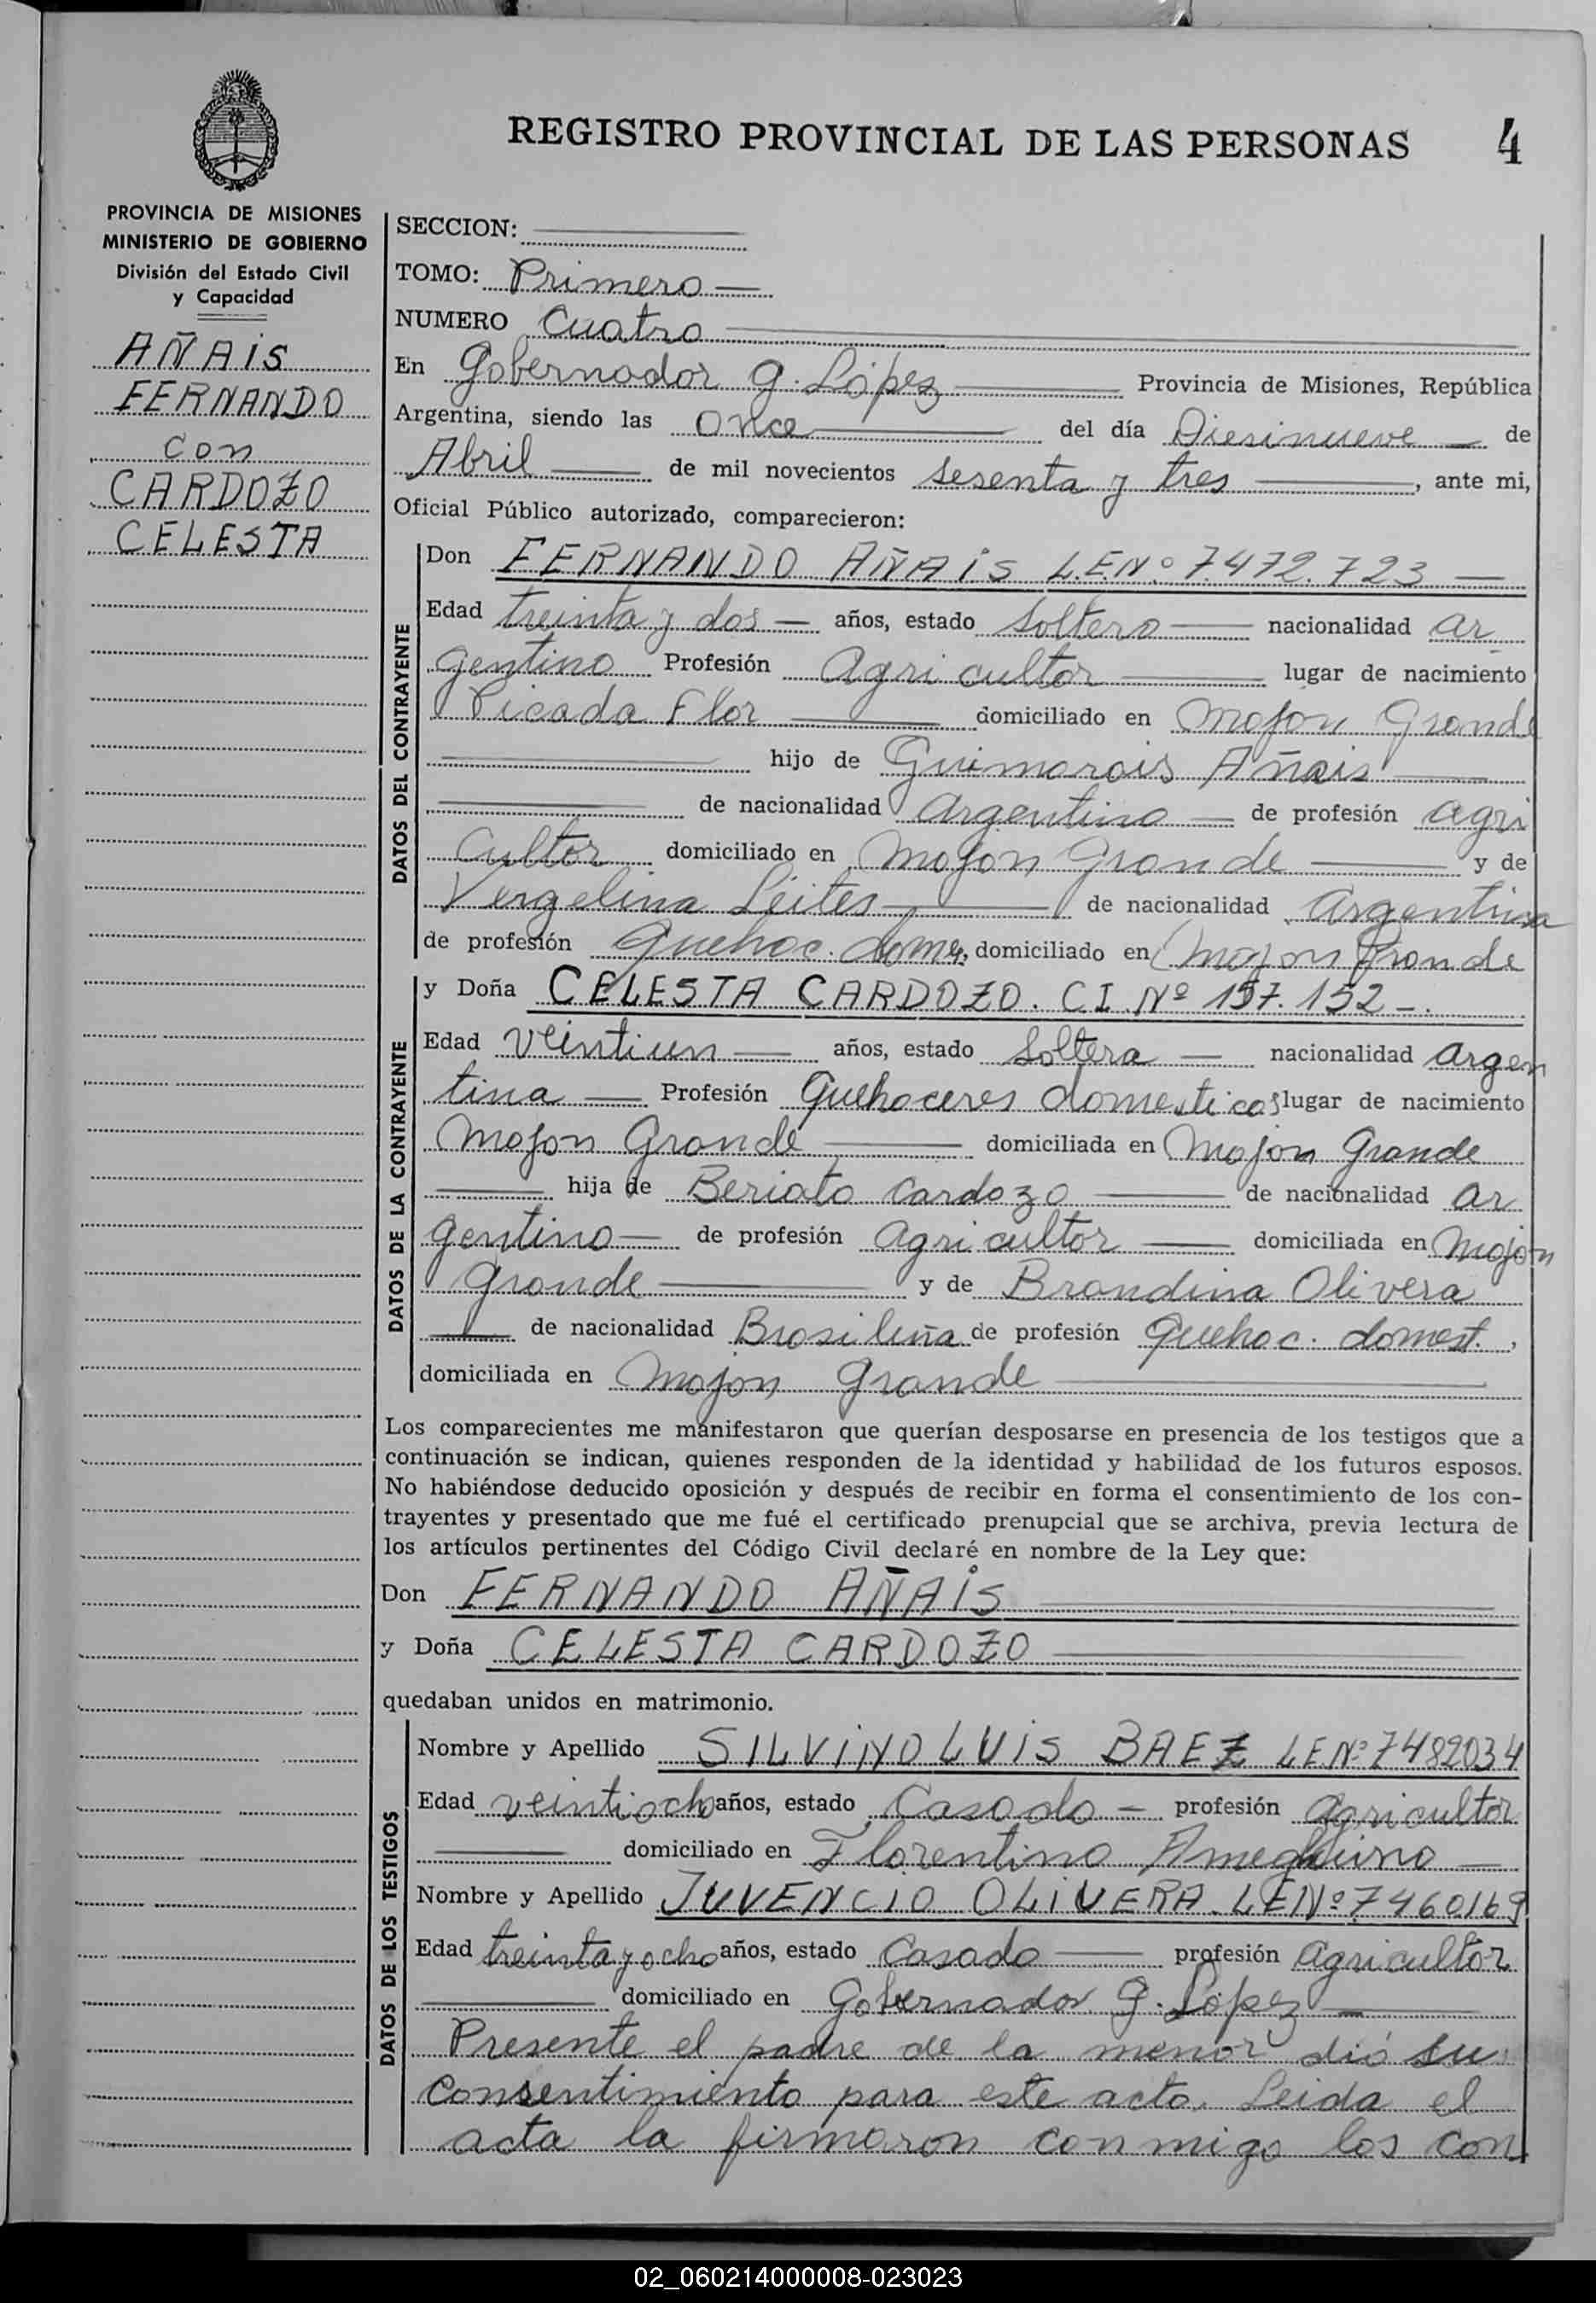 REGISTRO PROVINCIAL DE LAS PERSONAS 4
PROVINCIA DE MISIONES
MINISTERIO DE GOBIERNO
División del Estado Civil
y Capacidad
AÑAiS
FERNANDO
con
CARDOZO
CELESTA
SECCION:
TOMO: Primero
NUMERO Cuatro
En Gobernador G. López Provincia de Misiones, República
Argentina, siendo las Once del día Diesinueve de
Abril de mil novecientos sesenta y tres, ante mi,
Oficial Público autorizado, comparecieron:
DATOS DEL CONTRAYENTE
Don FERNANDO AÑAiS L.E.Nº 7.472.723
Edad treinta y dos años, estado Soltero nacionalidad ar
gentino Profesión Agricultor lugar de nacimiento
Picada Flor domiciliado en Mojon Grande
hijo de Guimarais Añais
de nacionalidad Argentino de profesión agri
cultor domiciliado en Mojon Grande y de
Vergelina Leites de nacionalidad Argentina
de profesión Quehac. dome, domiciliado en Mojon Grande
DATOS DE LA CONTRAYENTE
y Doña CELESTA CARDOZO. C.I. Nº 157.152
Edad Veintiun años, estado Soltera nacionalidad argen
tina Profesión Quehaceres domesticos lugar de nacimiento
Mojon Grande domiciliada en Mojon Grande
hija de Beriato Cardozo de nacionalidad ar
gentino de profesión agricultor domiciliada en Mojon
Grande y de Brandina Olivera
de nacionalidad Brasileña de profesión Quehac. domest.,
domiciliada en Mojon Grande
Los comparecientes me manifestaron que querían desposarse en presencia de los testigos que a
continuación se indican, quienes responden de la identidad y habilidad de los futuros esposos.
No habiéndose deducido oposición y después de recibir en forma el consentimiento de los con-
trayentes y presentado que me fué el certificado prenupcial que se archiva, previa lectura de
los artículos pertinentes del Código Civil declaré en nombre de la Ley que:
Don FERNANDO AÑAiS
y Doña CELESTA CARDOZO
quedaban unidos en matrimonio.
DATOS DE LOS TESTIGOS
Nombre y Apellido SILViNO LUiS BAEZ L.E.Nº 7482034
Edad veintiocho años, estado Casado profesión Agricultor
domiciliado en Florentino Ameghino
Nombre y Apellido JUVENCIO OLiVERA. L.E.Nº 7460169
Edad treinta y ocho años, estado Casado profesión agricultor
domiciliado en Gobernador G. López
Presente el padre de la menor dió su
consentimiento para este acto. Leida el
acta la firmaron conmigo los con
02_060214000008-023023